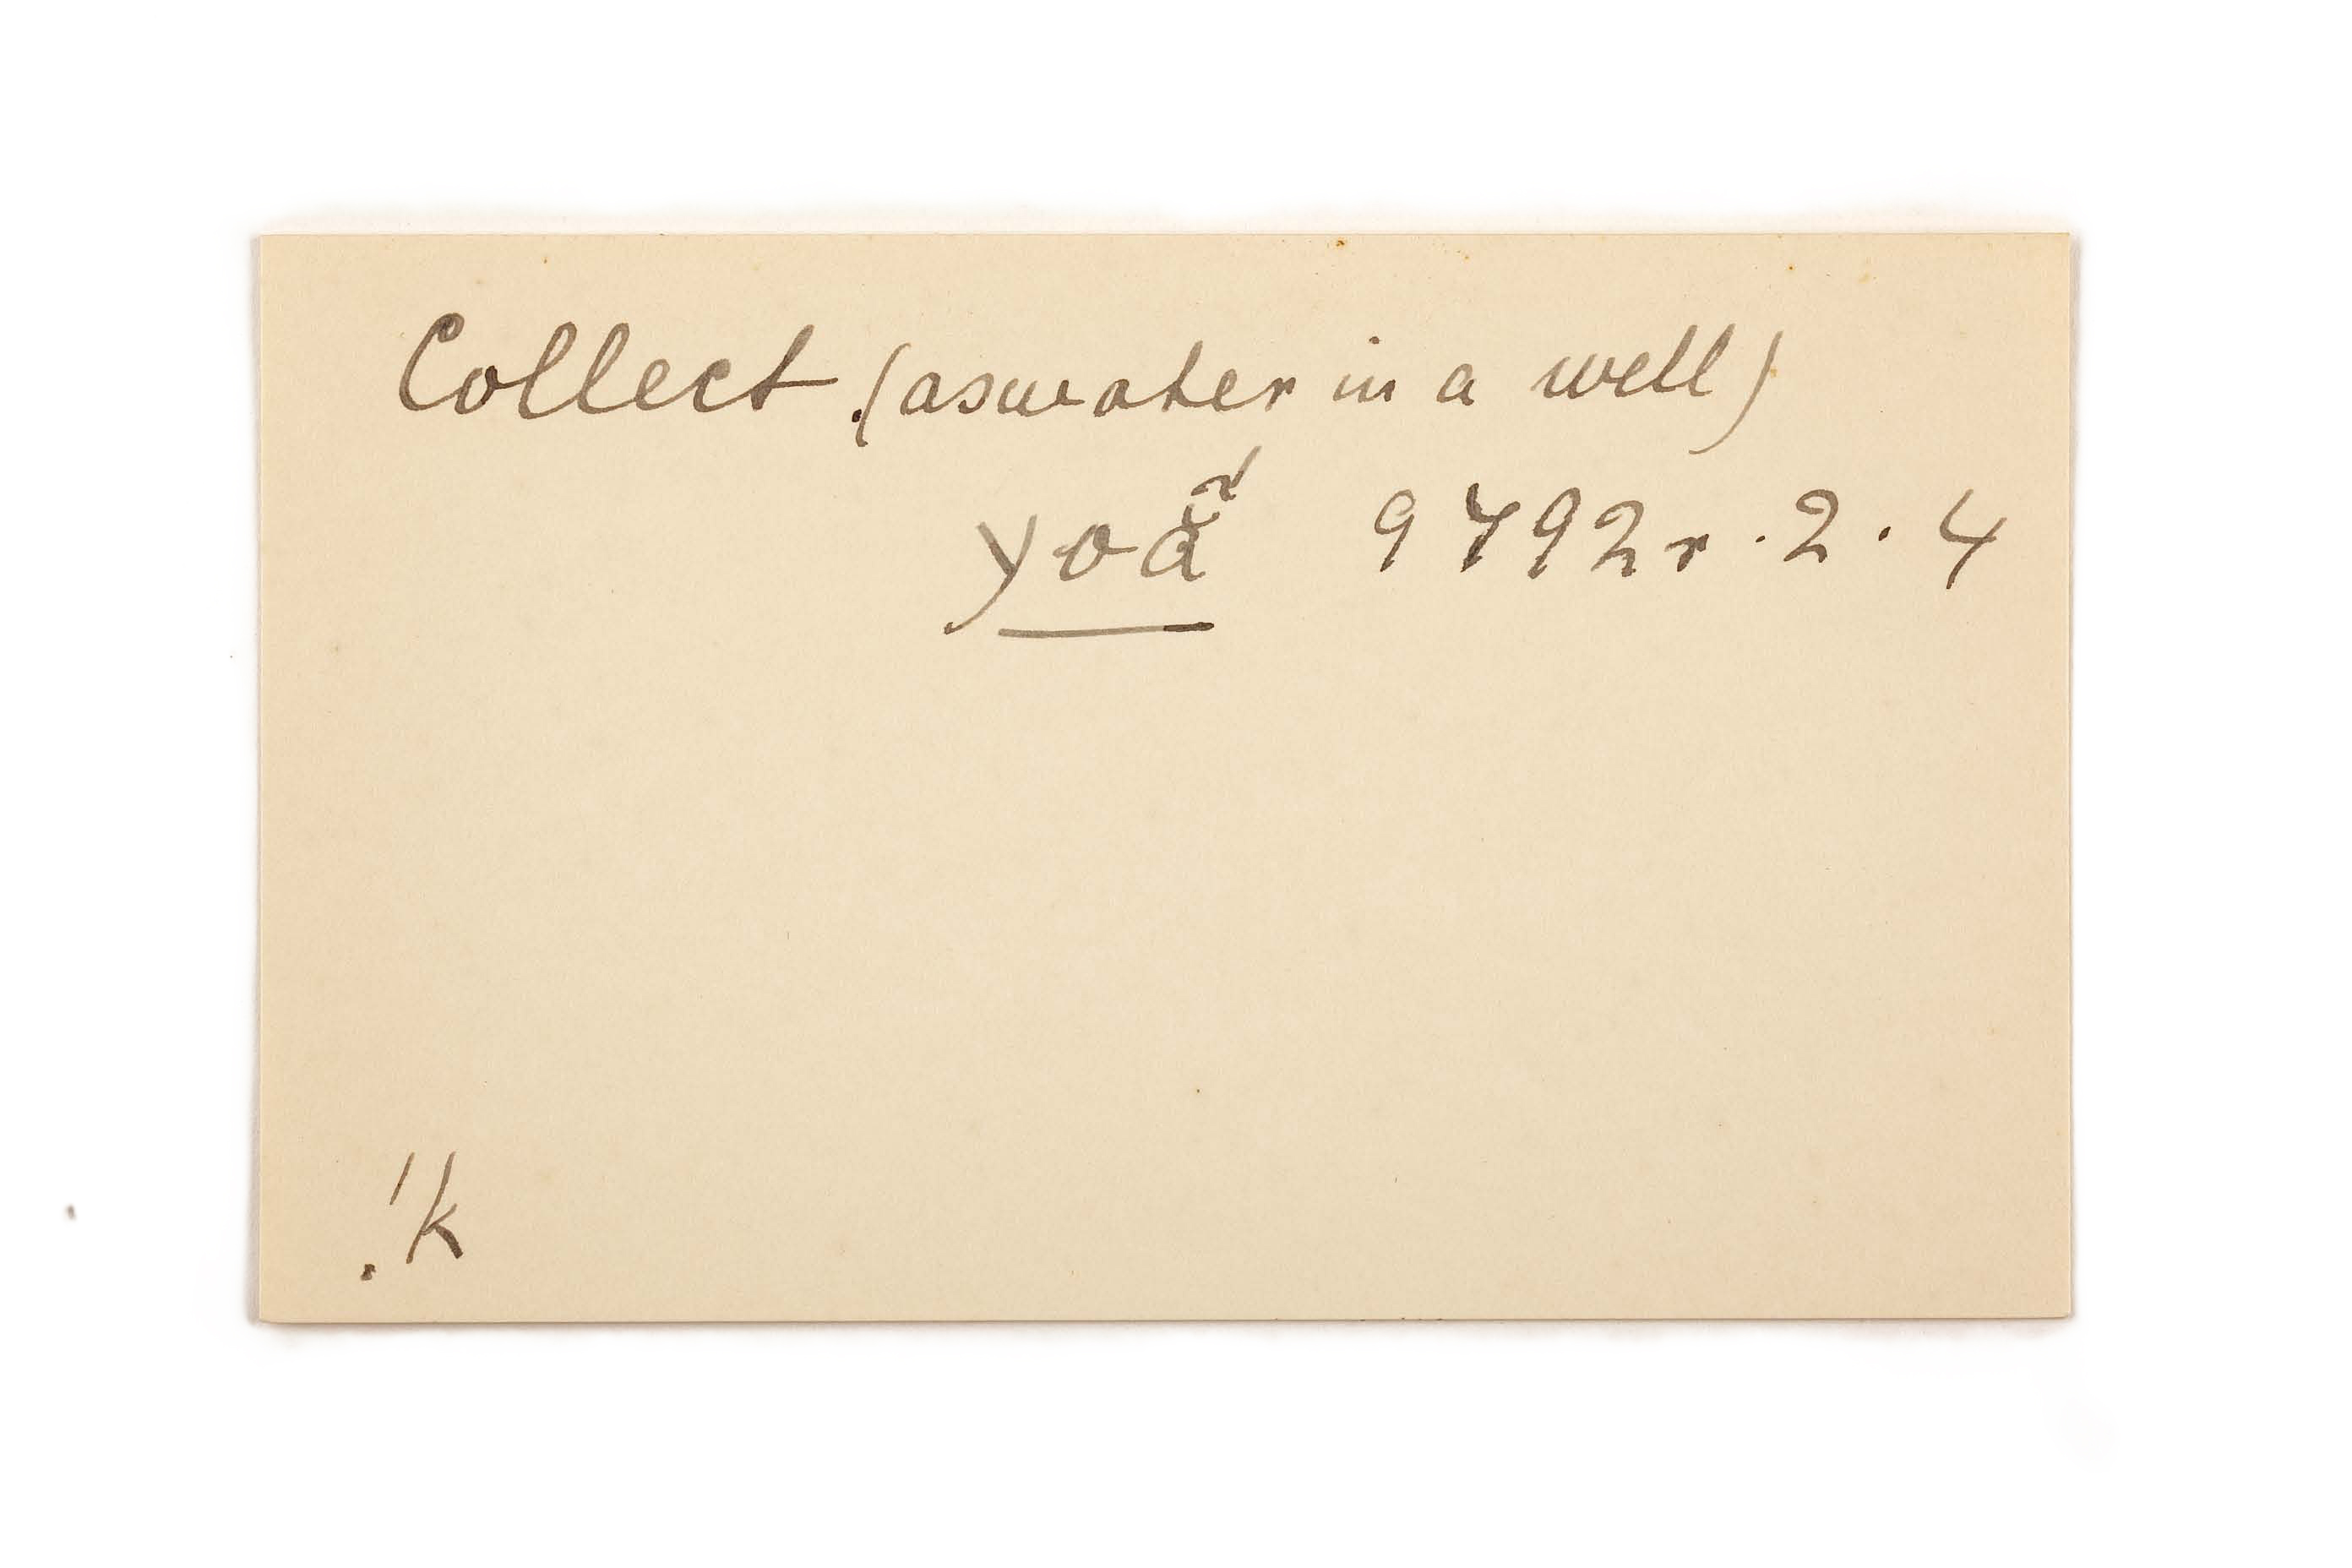 Collect (as water in a well)
yoã̆́ 9792r.2.4
!k